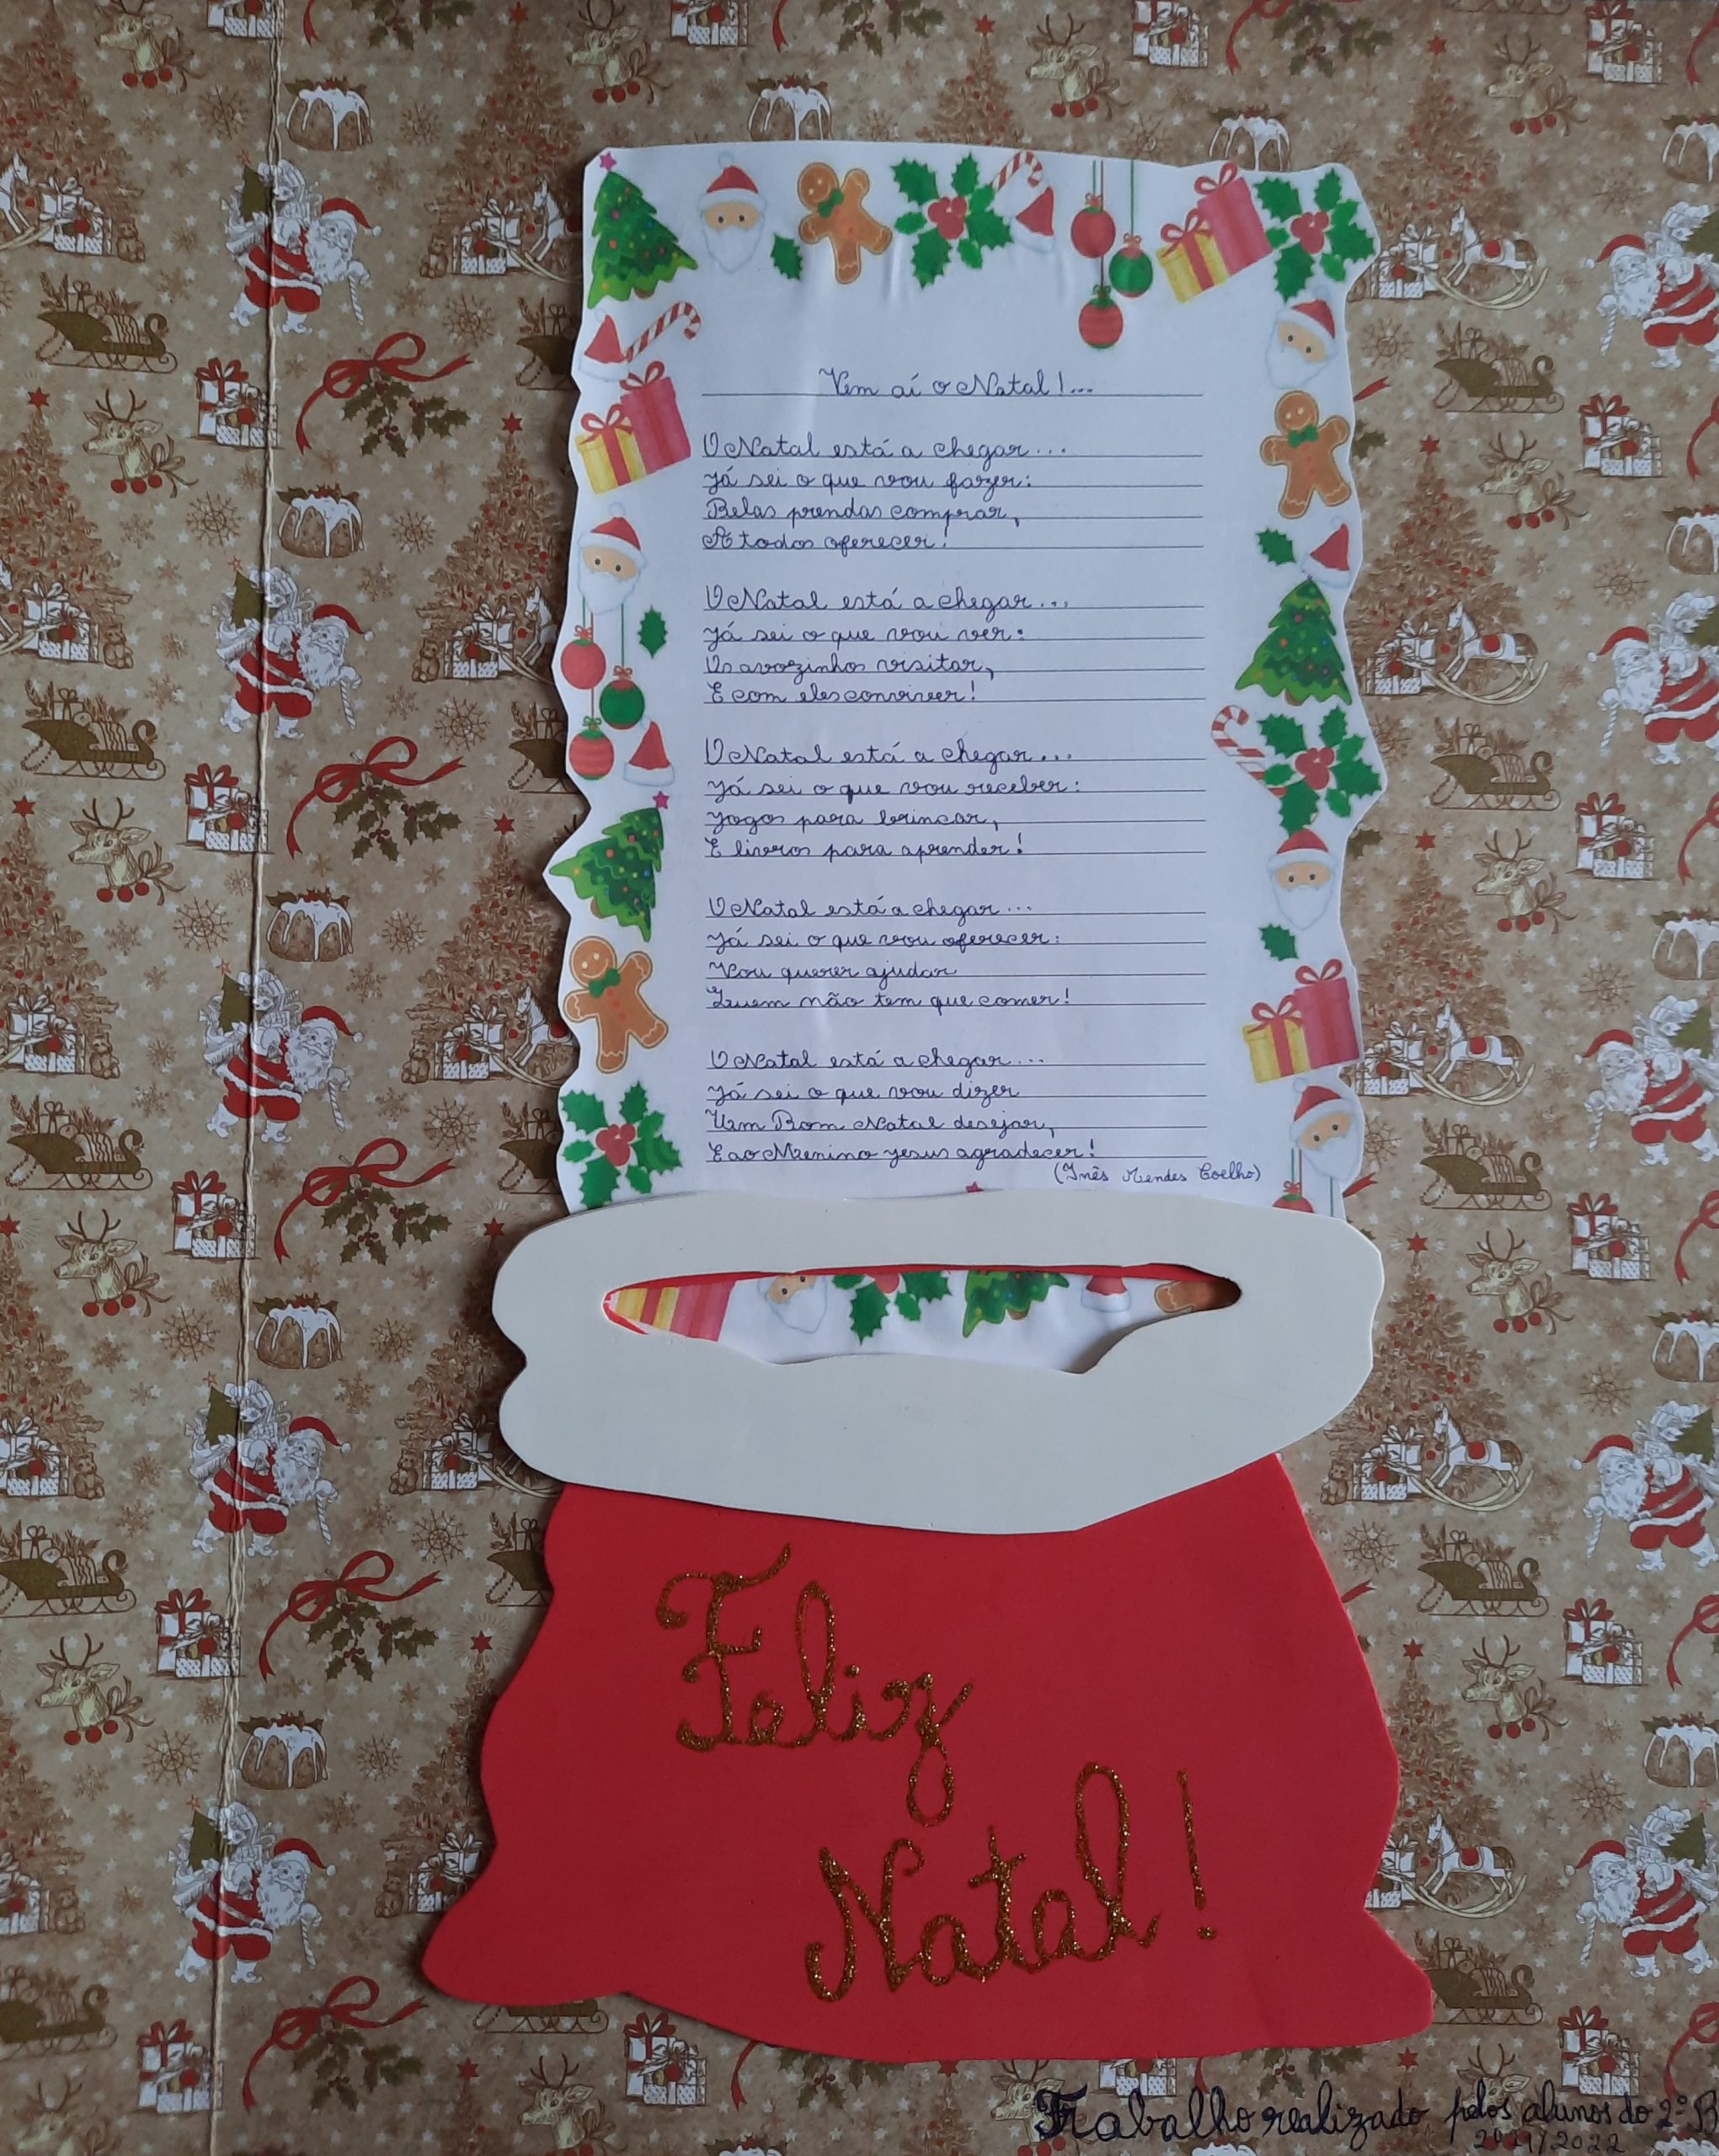 Vem aí o Natal!...
O Natal está a chegar...
Já sei o que vou fazer:
Belas prendas comprar,
A todos oferecer!
O Natal está a chegar...
Já sei o que vou ver:
Os avozinhos visitar,
E com eles conviver!
O Natal está a chegar...
Já sei o que vou receber:
Jogos para brincar,
E livros para aprender!
O Natal está a chegar...
Já sei o que vou oferecer:
Vou querer ajudar
Quem não tem que comer!
O Natal está a chegar...
Já sei o que vou dizer
Um Bom Natal desejar,
E ao Menino Jesus agradecer!
(Inês Mendes Coelho)
Feliz
Natal!
Trabalho realizado pelos alunos do 2º B
2021/2022